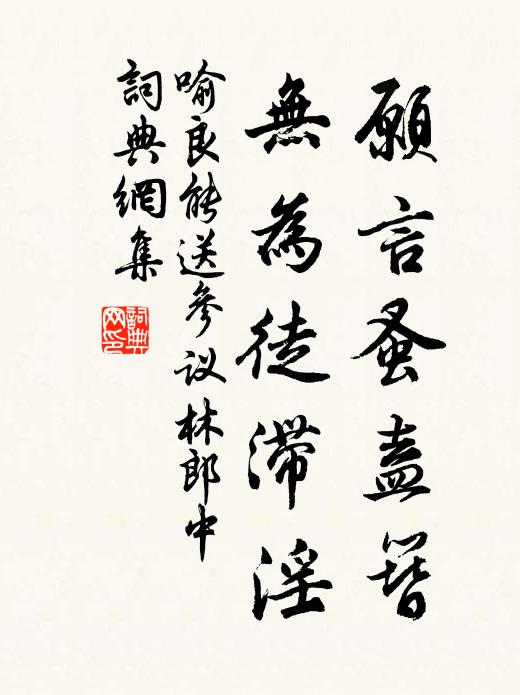 願言蚤盍簪
無為徒滯淫
喻良能送參议林郎中
詞典網集
詞典网印